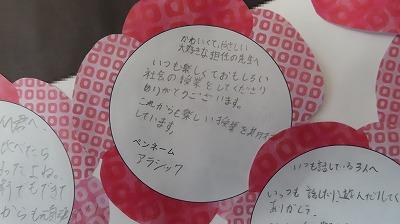 かわいくて、やさしい
大好きな担任の先生へ
いつも楽しくておもしろい
社会の授業をしてくださり
ありがとうございます。
これからも楽しい授業を期待
しています。
ペンネーム
アラシック
君へ
比べたら
ったよね。
からも
いつも話している3人へ
いっつも話したり遊んだりしてく
ありがとう。